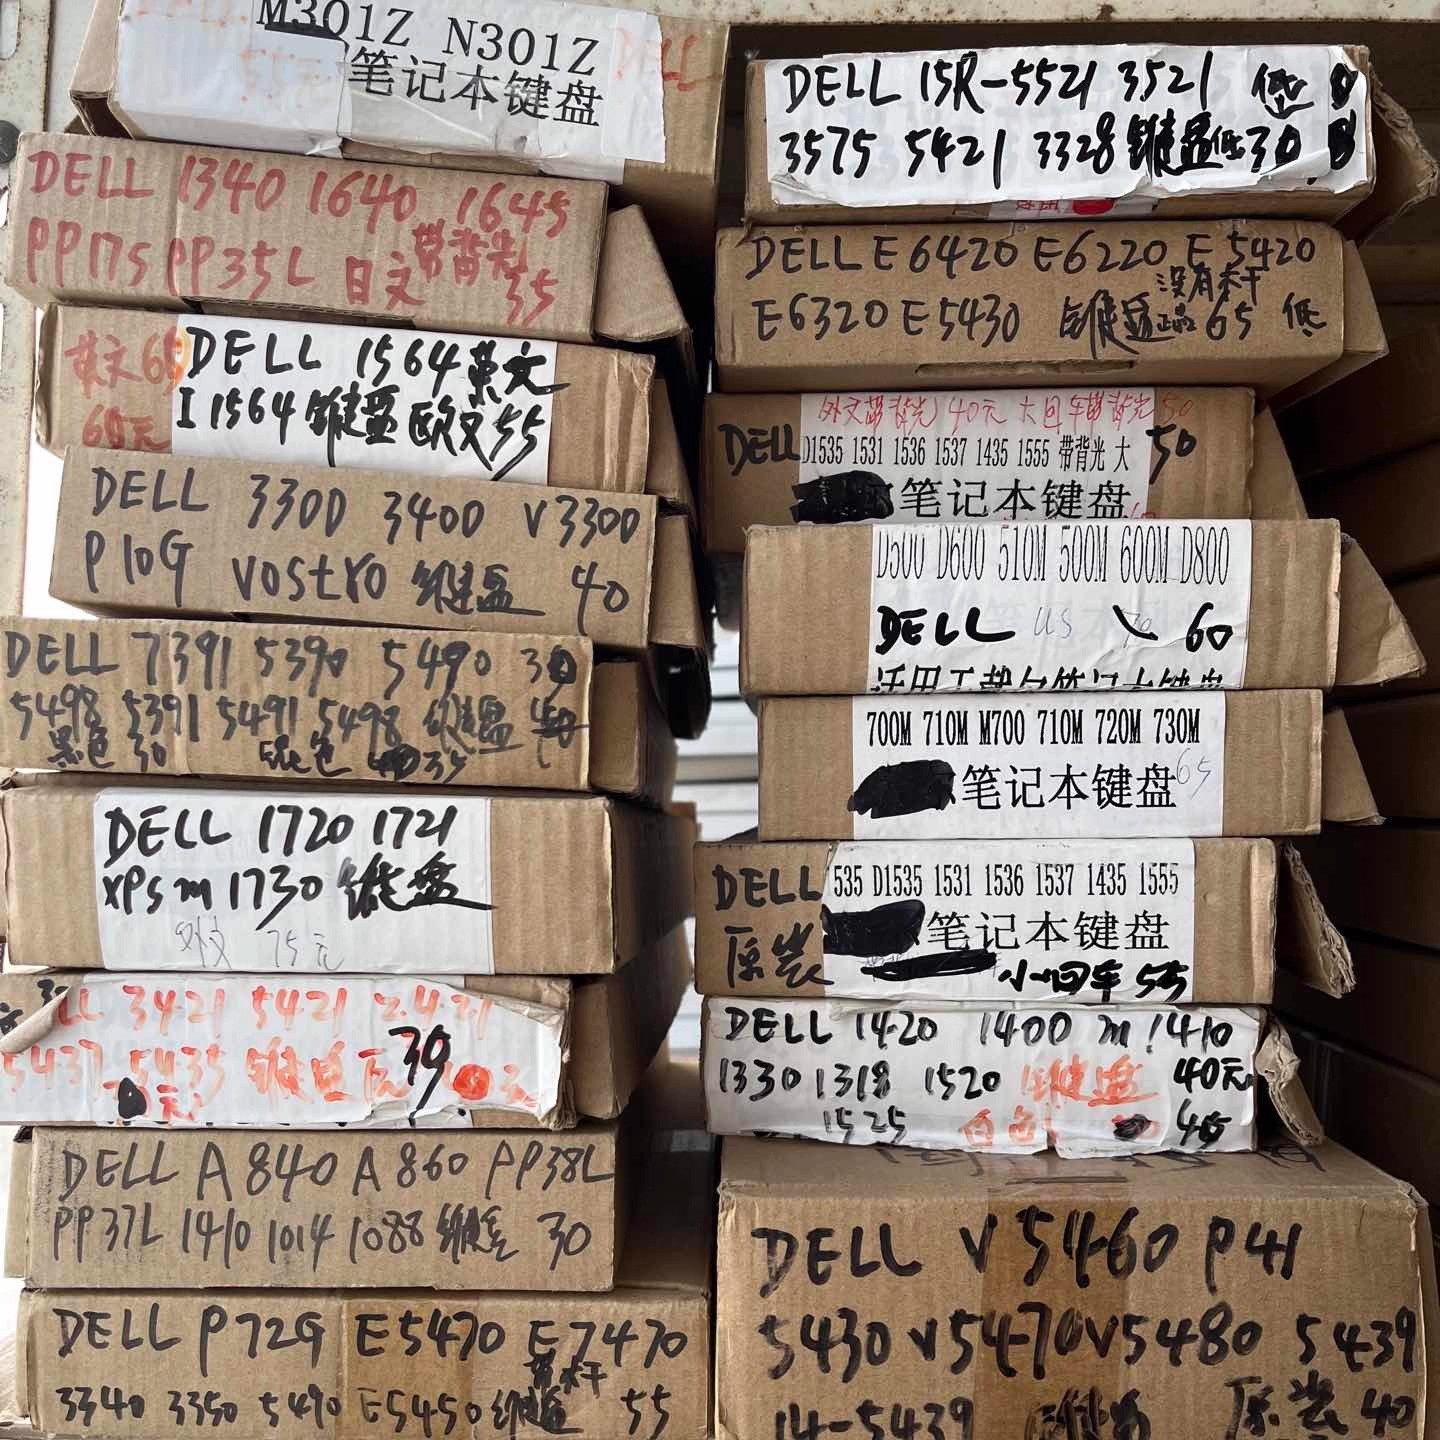 M301Z N301Z
笔记本键盘
DELL 1340 1640 1645
PP17S PP35L 日文 带背光 35
英文65
65元
DELL 1564 英文
I1564 键盘 欧文 55
DELL 3300 3400 V3300
P10G VOSt80 键盘 40
DELL 7391 5390 5490 30
5498 5391 5491 5498 键盘
黑色 30 银色 35
DELL 1720 1721
XPS m1730 键盘
外文 75元
3421 5421 2421
5437 5435 键盘 39
元
DELL A840 A860 PP38L
PP37L 1410 1014 1088 键盘 30
DELL P72G E5470 E7470
带杆
3340 3350 5490 E5450 键盘 55
DELL 15R-5521 3521 低
3575 5421 3328 键盘 低 30
DELL E6420 E6220 E5420
没有杆
E6320 E5430 键盘 正品 65 低
外文带背光 40元 大回车带背光 50
DELL D1535 1531 1536 1537 1435 1555 带背光 大 50
笔记本键盘
D500 D600 510M 500M 600M D800
DELL US 60
适用于戴尔笔记本键盘
700M 710M M700 710M 720M 730M
笔记本键盘 65
DELL 1535 D1535 1531 1536 1537 1435 1555
原装 笔记本键盘
小回车 55
DELL 1420 1400 m1410
1330 1318 1520 键盘 40元
1525 白色 45
DELL V5460 P41
5430 V5470 V5480 5439
14-5439 键盘 原装 40